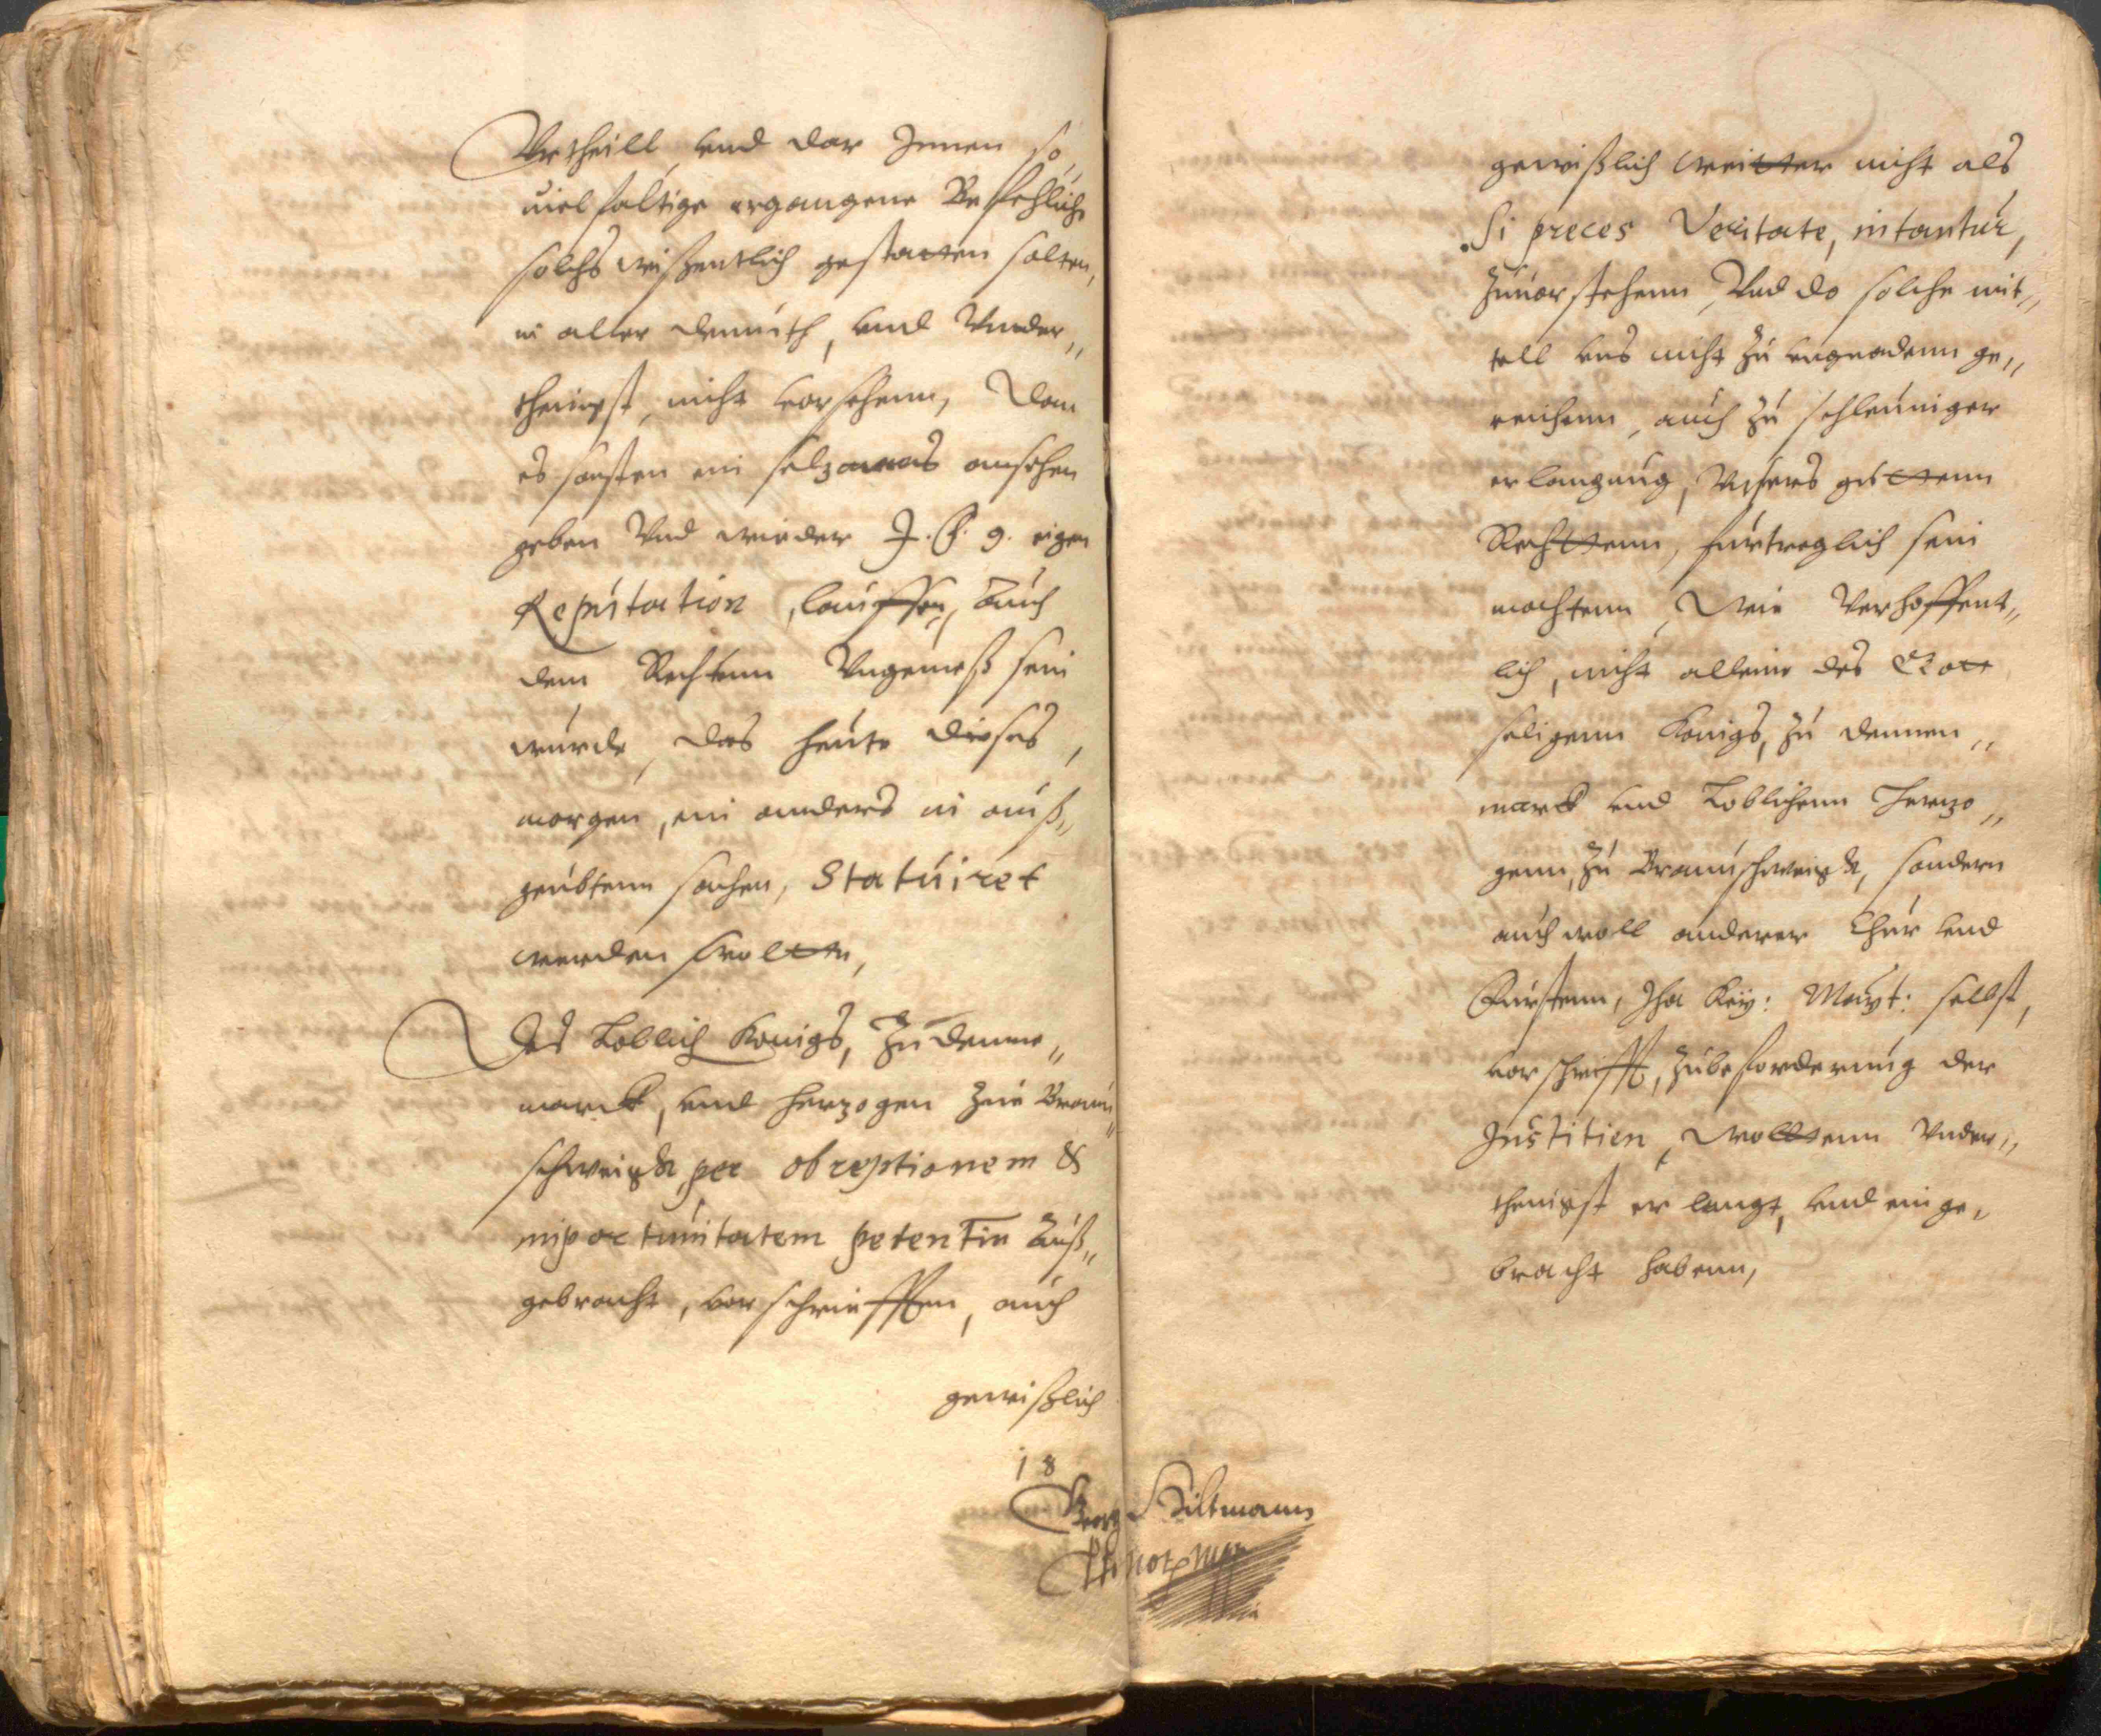 Vrtheill vnd dar Jnnen so
vielfaltige ergangene Befehlich
solchs wißentlich gestatten solten,
in aller demuth, vnd Vnder„
thenigst, nicht vorsehenn, Dan
es sonsten ein selzames ansehen
geben Vnd wieder J. F. g. eigen
Reputation, lauffen, auch
dem Rechtenn Vngemeß sein
wurde, das heute dieses,
morgen, ein anders in auß„
geubtenn sachen, Statuiret
werden solte,
Des Loblich Konigs, Zu Denne„
marck, vnd herzogen Zue Braun„
schweigk per obreptionem &
importunitatem petentin auß„
gebracht, vorschriefften, auch
gewißlich
18
Georg Hiltmann
Not
gewißlich weitter nicht als
Si preces Veritate, nitantur,
Zuuorstehenn, Vnd do solche mit„
tell vns nicht zu vngnadenn ge„
reichenn, auch zu schleuniger
erlangung, Vnsers guttenn
Rechttenn, furtreglich sein
mochtenn, Wir Verhoffent„
lich, nicht alleine des Gott
seligenn Konigs, zu Dennen„
marck vnd Loblichenn Herzo„
genn, zu Braunschweigk, sondern
auch woll anderer Chur vnd
Furstenn, Jha Key: Mayt: selbst,
vorschrifft, zu beforderung der
Justitien, woltenn Vnder„
thenigst erlangt, vnd einge„
bracht habenn,